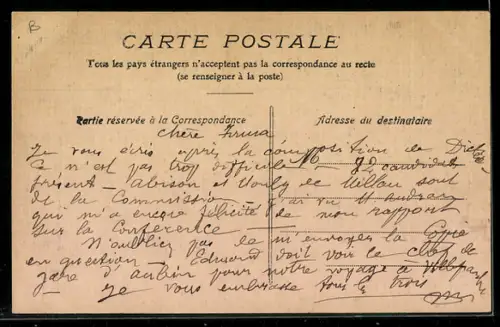 B
CARTE POSTALE
Tous les pays étrangers n'acceptent pas la correspondance au recto
(se renseigner à la poste)
Partie réservée à la Correspondance
Adresse du destinataire
Chère
Je vous écris après la composition de
Ce n'est pas trop difficile 72 candidats
présent — et de Millau sont
de la Commission J'ai vu M
qui m'a encore félicité de mon rapport
sur la Conférence
N'oubliez pas de m'envoyer la Copie
en question — Edmond doit voir le chef de
gare d'Aubin pour notre voyage à
Je vous embrasse tous les trois